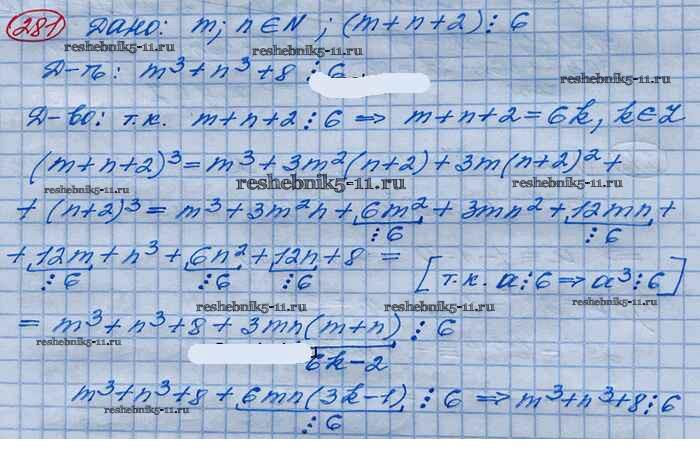 281 Дано: m; n ∈ N; (m+n+2) ⋮ 6
reshebnik5-11.ru
Д-ть: m³+n³+8 ⋮ 6
reshebnik5-11.ru
Д-во: т.к. m+n+2 ⋮ 6 ⇒ m+n+2=6k, k∈Z
reshebnik5-11.ru
(m+n+2)³ = m³+3m²(n+2)+3m(n+2)²+
reshebnik5-11.ru reshebnik5-11.ru reshebnik5-11.ru
+(n+2)³ = m³+3m²n+6m²+3mn²+12mn+
⋮6 ⋮6
+12m+n³+6n²+12n+8 =
⋮6 ⋮6 ⋮6 [т.к. a⋮6 ⇒ a³⋮6]
reshebnik5-11.ru reshebnik5-11.ru reshebnik5-11.ru
= m³+n³+8+3mn(m+n) ⋮ 6
reshebnik5-11.ru
6k-2
m³+n³+8+6mn(3k-1) ⋮ 6 ⇒ m³+n³+8⋮6
reshebnik5-11.ru reshebnik5-11.ru
⋮6